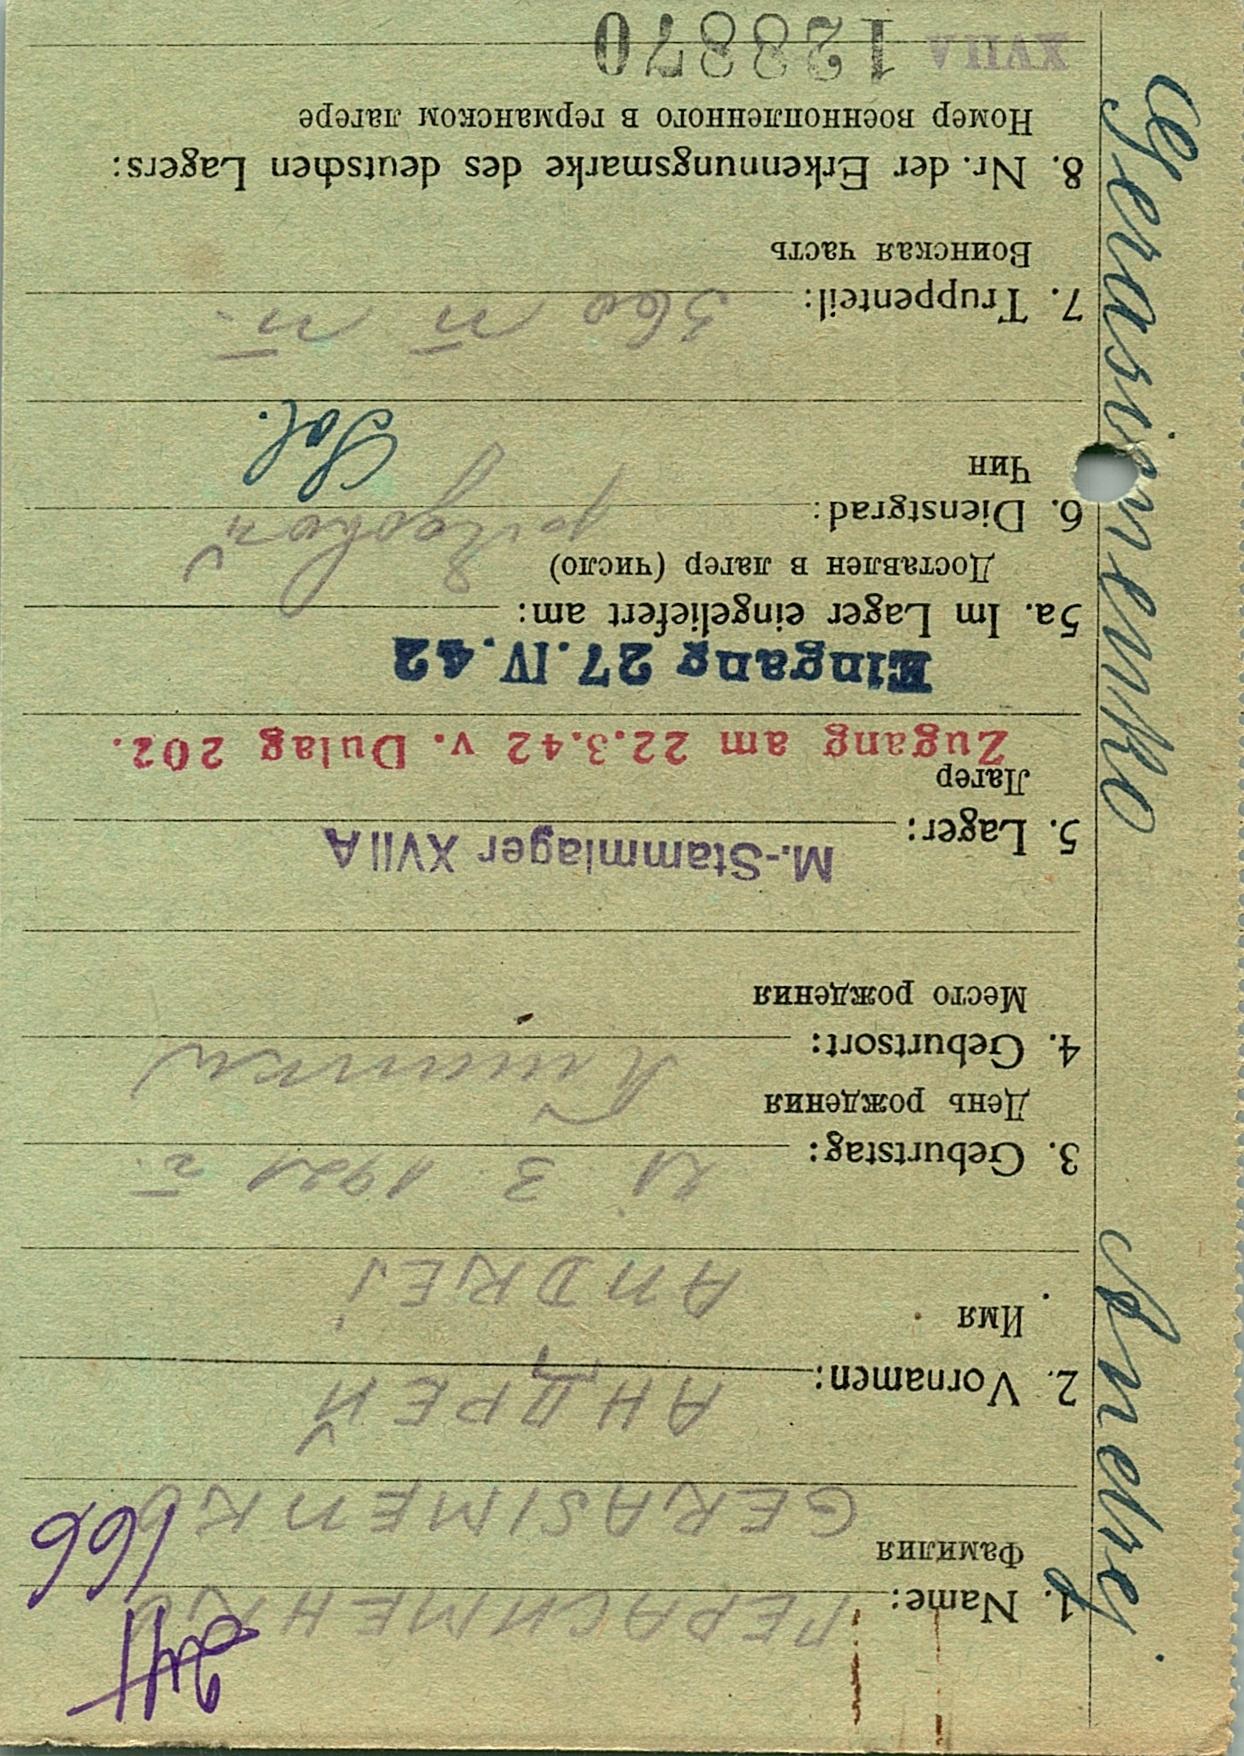 1. Name: ГЕРАСИМЕНКО
Фамилия
GERASIMENKO
2. Vornamen: АНДРЕЙ
Имя
ANDREJ
3. Geburtstag: 3 1921 г.
День рождения
4. Geburtsort:
Место рождения
M.-Stammlager XVII A
5. Lager:
Лагерь
Zugang am 22.3.42 v. Dulag 202.
Eingang 27.IV.42
5a. Im Lager eingeliefert am:
Доставлен в лагерь (число)
6. Dienstgrad: рядовой
Чин
Sol.
7. Truppenteil: 360 п п
Воинская часть
8. Nr. der Erkennungsmarke des deutschen Lagers:
Номер военнопленного в германском лагере
XVII A 128870
Gerasimenko Andrej.